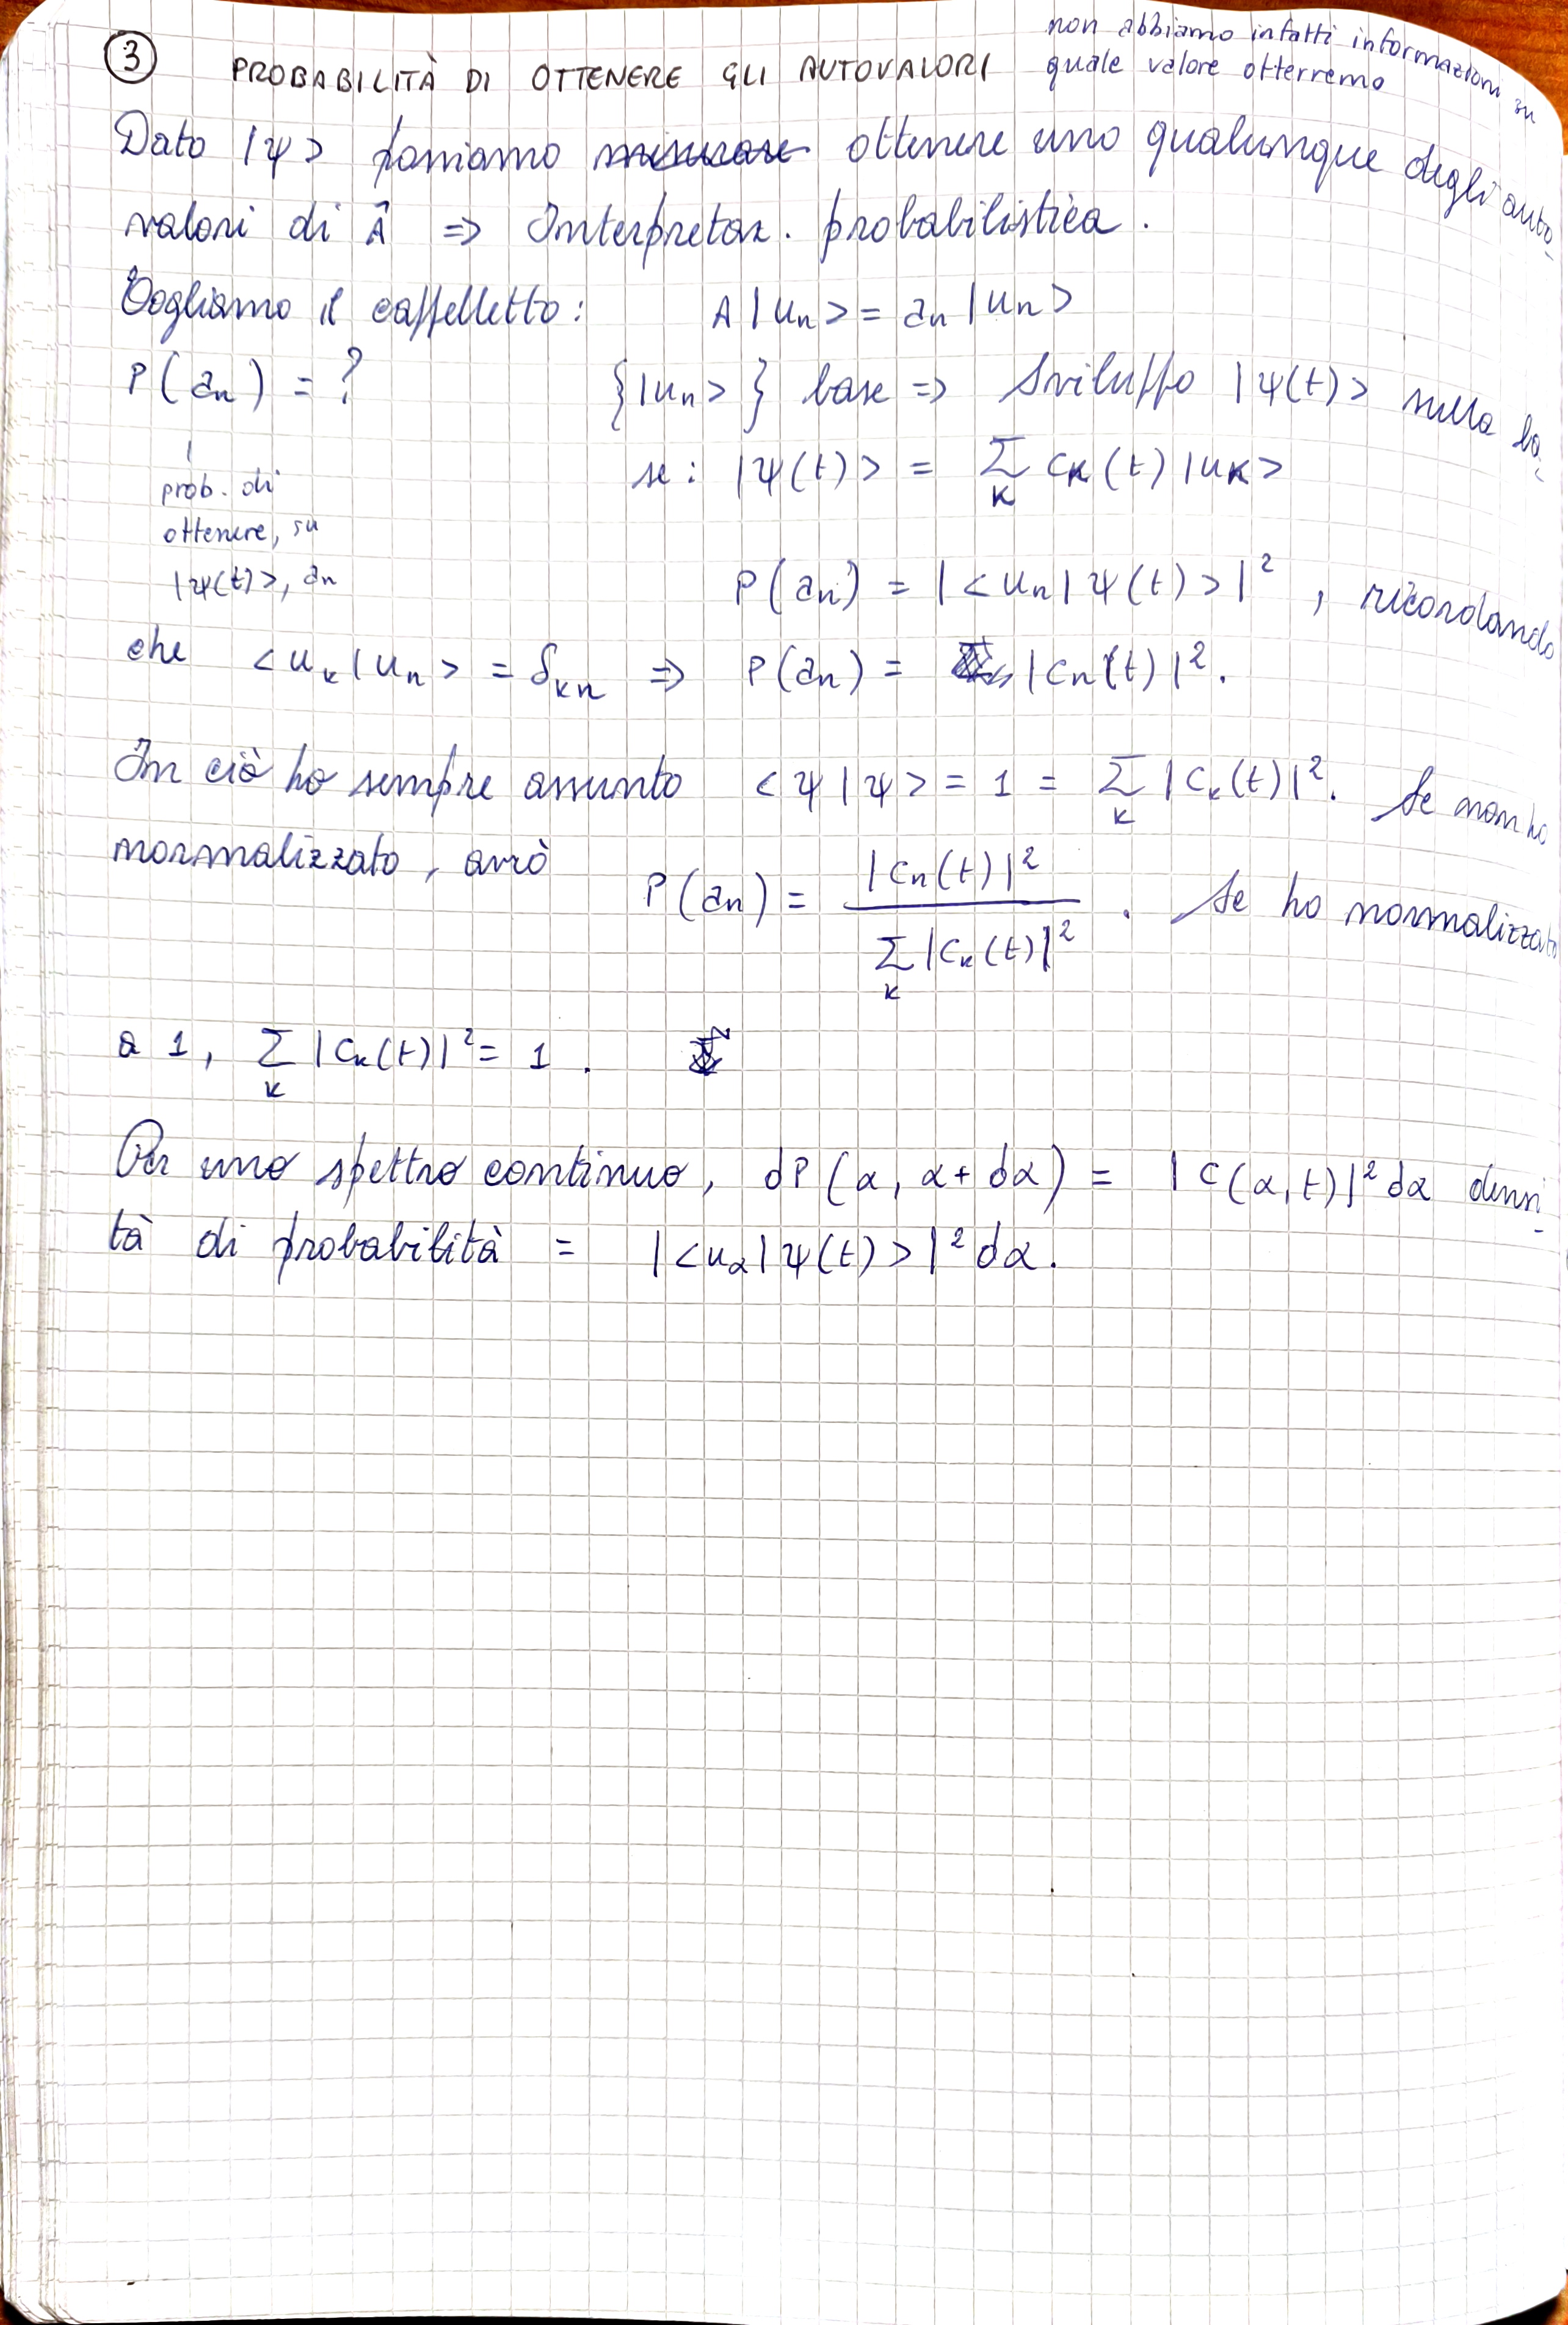 ③ PROBABILITÀ DI OTTENERE GLI AUTOVALORI
non abbiamo infatti informazioni su
quale valore otterremo
Dato |ψ> possiamo misurare ottenere uno qualunque degli auto-
valori di Â => Interpretaz. probabilistica.
Togliamo il cappelletto: A|un> = an|un>
P(an) = ? {|un>} base => Sviluppo |ψ(t)> sulla ba-
se: |ψ(t)> = Σ_K cK(t)|uK>
prob. di
ottenere, su
|ψ(t)>, an
P(an) = |<un|ψ(t)>|², ricordando
che <uk|un> = δkn => P(an) = |cn(t)|².
In ciò ho sempre assunto <ψ|ψ> = 1 = Σ_k |ck(t)|². Se non ho
normalizzato, avrò P(an) = |cn(t)|² / Σ_k |ck(t)|². Se ho normalizzato
a 1, Σ_k |ck(t)|² = 1.
Per uno spettro continuo, dP(α, α+dα) = |c(α,t)|² dα densi-
tà di probabilità = |<uα|ψ(t)>|² dα.